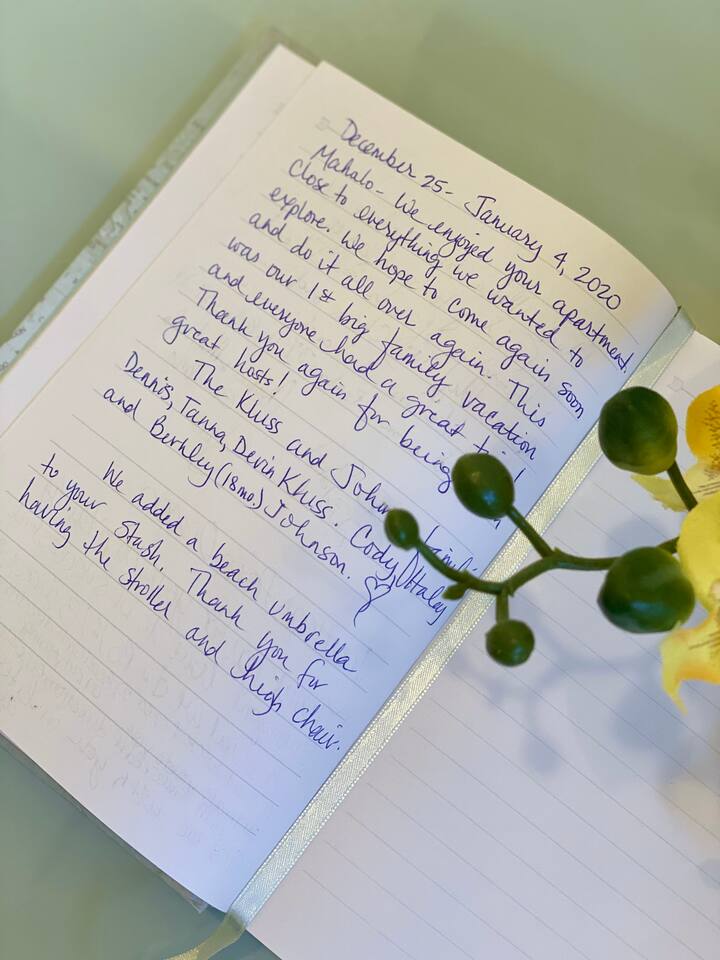 December 25- January 4, 2020
Mahalo- We enjoyed your apartment.
Close to everything we wanted to
explore. We hope to come again soon
and do it all over again. This
was our 1st big family vacation
and everyone had a great
Thank you again for being
great hosts!
The Kluss and
Dennis, Tanna, Devin Kluss. Cody, Haley
and Berkley (18mo) Johnson. ♡
We added a beach umbrella
to your stash. Thank you for
having the stroller and high chair.